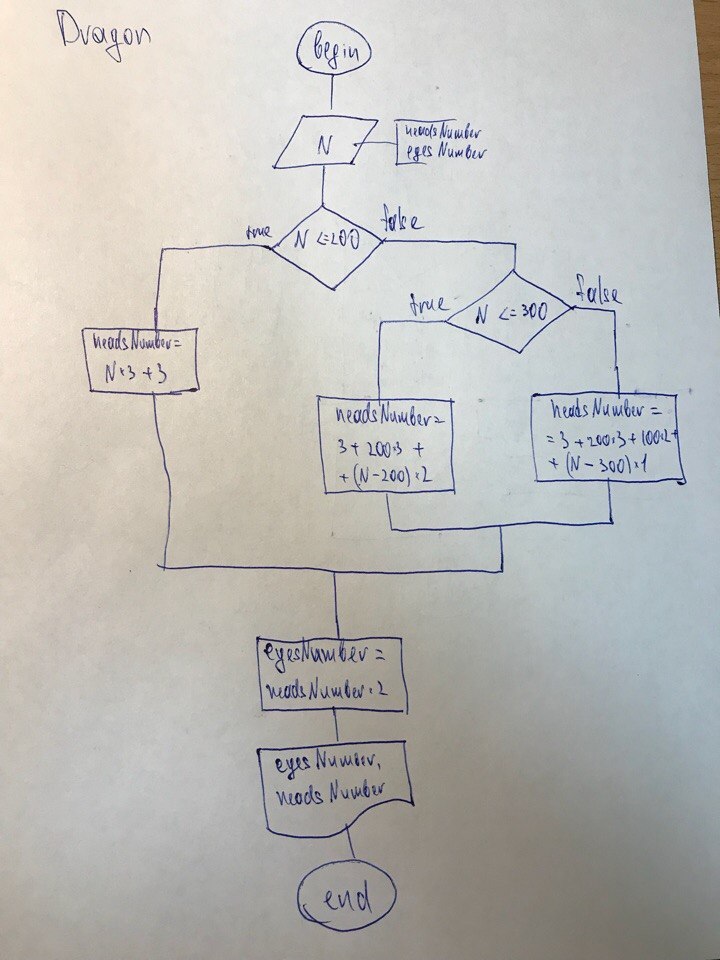 Dragon
begin
N
headsNumber
eyes Number
true
false
N <=200
true
false
N <=300
headsNumber=
N*3+3
headsNumber=
3+200*3+
+(N-200)*2
headsNumber=
=3+200*3+100*2+
+(N-300)*1
eyesNumber=
headsNumber*2
eyesNumber,
headsNumber
end